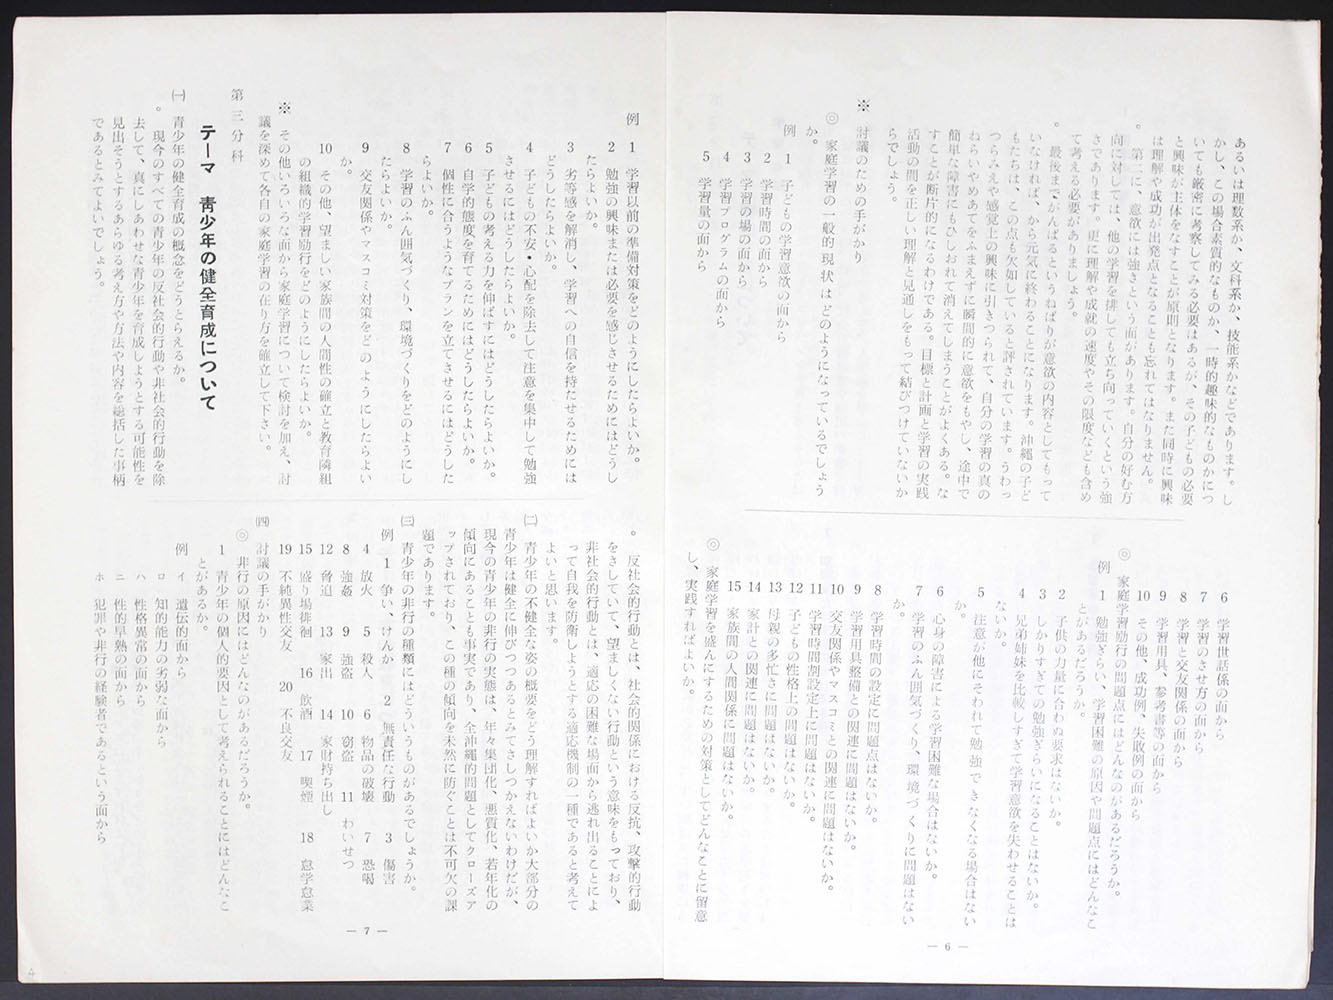 あるいは理数系か、文科系か、技能系かなどであります。し
かし、この場合素質的なものか、一時的趣味的なものかにつ
いても厳密に考察してみる必要はあるが、その子どもの必要
と興味が主体をなすことが原則となります。また同時に興味
は理解や成功が出発点となることも忘れてはなりません。
。第二に、意欲には強さという面があります。自分の好む方
向に対しては、他の学習を排しても立ち向っていくという強
さであります。更に理解や成就の速度やその限度なども含め
て考える必要がありましょう。
。最後まで、がんばるというねばりが意欲の内容としてもって
いなければ、から元気に終わることになります。沖縄の子ど
もたちは、この点も欠如していると評されています。うわっ
つらみえや感覚上の興味に引きつられて、自分の学習の真の
ねらいやめあてをふまえずに瞬間的に意欲をもやし、途中で
簡単な障害にもひしおれて消えてしまうことがよくある。な
すことが断片的になるわけである。目標と計画と学習の実践
活動の間を正しい理解と見通しをもって結びつけていないか
らでしょう。
※ 討議のための手がかり
◎ 家庭学習の一般的現状はどのようになっているでしょう
か。
例 1 子どもの学習意欲の面から
2 学習時間の面から
3 学習の場の面から
4 学習プログラムの面から
5 学習量の面から
6 学習世話係の面から
7 学習のさせ方の面から
8 学習と交友関係の面から
9 学習用具、参考書等の面から
10 その他、成功例、失敗例の面から
◎ 家庭学習励行の問題点にはどんなのがあるだろうか。
例 1 勉強ぎらい、学習困難の原因や問題点にはどんなこ
とがあるだろうか。
2 子供の力量に合わぬ要求はないか。
3 しかりすぎての勉強ぎらいになることはないか。
4 兄弟姉妹を比較しすぎて学習意欲を失わせることは
ないか。
5 注意が他にそわれて勉強できなくなる場合はない
か。
6 心身の障害による学習困難な場合はないか。
7 学習のふん囲気づくり、環境づくりに問題はない
か。
8 学習時間の設定に問題点はないか。
9 学習用具整備との関連に問題はないか。
10 交友関係やマスコミとの関連に問題はないか。
11 学習時間割設定上に問題はないか。
12 子どもの性格上の問題はないか。
13 母親の多忙さに問題はないか。
14 家計との関連に問題はないか。
15 家族間の人間関係に問題はないか。
◎ 家庭学習を盛んにするための対策としてどんなことに留意
し、実践すればよいか。
— 6 —
例 1 学習以前の準備対策をどのようにしたらよいか。
2 勉強の興味または必要を感じさせるためにはどうし
たらよいか。
3 劣等感を解消し、学習への自信を持たせるためには
どうしたらよいか。
4 子どもの不安・心配を除去して注意を集中して勉強
させるにはどうしたらよいか。
5 子どもの考える力を伸ばすにはどうしたらよいか。
6 自学的態度を育てるためにはどうしたらよいか。
7 個性に合うようなプランを立てさせるにはどうした
らよいか。
8 学習のふん囲気づくり、環境づくりをどのようにし
たらよいか。
9 交友関係やマスコミ対策をどのようにしたらよい
か。
10 その他、望ましい家族間の人間性の確立と教育隣組
の組織的学習励行をどのようにしたらよいか。
※ その他いろいろな面から家庭学習について検討を加え、討
議を深めて各自の家庭学習の在り方を確立して下さい。
第三分科
テーマ 青少年の健全育成について
㈠ 青少年の健全育成の概念をどうとらえるか。
。現今のすべての青少年の反社会的行動や非社会的行動を除
去して、真にしあわせな青少年を育成しようとする可能性を
見出そうとするあらゆる考え方や方法や内容を総括した事柄
であるとみてよいでしょう。
。反社会的行動とは、社会的関係における反抗、攻撃的行動
をさしていて、望ましくない行動という意味をもっており、
非社会的行動とは、適応の困難な場面から逃れ出ることによ
って自我を防衛しようとする適応機制の一種であると考えて
よいと思います。
㈡ 青少年の不健全な姿の概要をどう理解すればよいか大部分の
青少年は健全に伸びつつあるとみてさしつかえないわけだが、
現今の青少年の非行の実態は、年々集団化、悪質化、若年化の
傾向にあることも事実であり、全沖縄的問題としてクローズア
ップされており、この種の傾向を未然に防ぐことは不可欠の課
題であります。
㈢ 青少年の非行の種類にはどういうものがあるでしょうか。
例 1 争い、けんか 2 無責任な行動 3 傷害
4 放火 5 殺人 6 物品の破壊 7 恐喝
8 強姦 9 強盗 10 窃盗 11 わいせつ
12 脅迫 13 家出 14 家財持ち出し
15 盛り場徘徊 16 飲酒 17 喫煙 18 怠学怠業
19 不純異性交友 20 不良交友
㈣ 討議の手がかり
◎ 非行の原因にはどんなのがあるだろうか。
1 青少年の個人的要因として考えられることにはどんなこ
とがあるか。
例 イ 遺伝的面から
ロ 知的能力の劣弱な面から
ハ 性格異常の面から
ニ 性的早熟の面から
ホ 犯罪や非行の経験者であるという面から
— 7 —